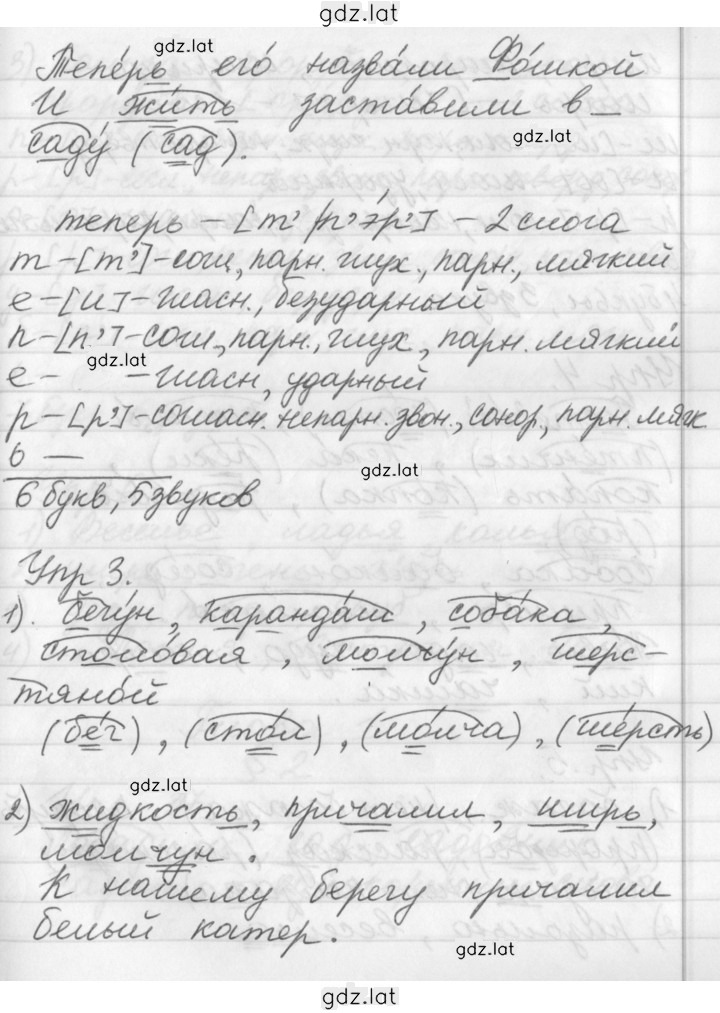 gdz.lat
gdz.lat
Тепе́рь его́ назва́ли Фо́шкой
И жи́ть заста́вили в
саду́ (сад).
gdz.lat
теперь – [т' / п' э́ р'] – 2 слога
т – [т'] – согл, парн. глух., парн., мягкий
е – [и] – гласн., безударный
п – [п'] – согл, парн., глух, парн. мягкий
gdz.lat
е – – гласн, ударный
р – [р'] – согласн. непарн. звон., сонор., парн. мягк
ь —
gdz.lat
6 букв, 5 звуков
Упр 3.
1). бегу́н, каранда́ш, соба́ка,
столо́вая, молчу́н, шерс-
тяно́й
(бег), (стол), (мо́лча), (ше́рсть)
gdz.lat
2) жидкость, причалил, ширь,
молчун.
К нашему берегу причалил
белый катер.
gdz.lat
gdz.lat